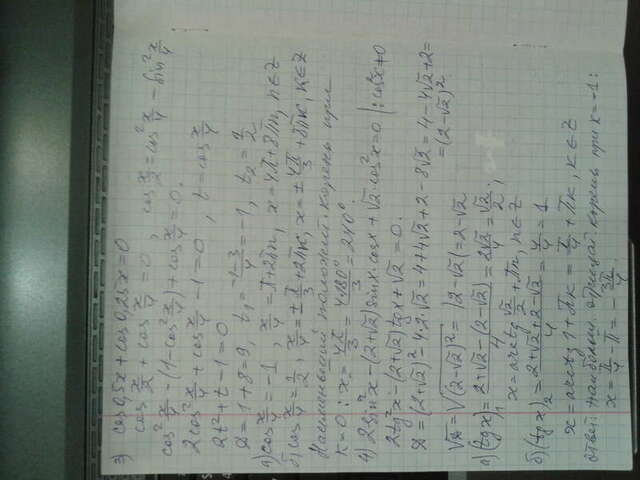 3) cos 0,5x + cos 0,25x = 0
cos x/2 + cos x/4 = 0, cos x/2 = cos² x/4 − sin² x/4
cos² x/4 − (1 − cos² x/4) + cos x/4 = 0.
2cos² x/4 + cos x/4 − 1 = 0, t = cos x/4
2t² + t − 1 = 0
D = 1 + 8 = 9, t₁ = (−1−3)/4 = −1, t₂ = 1/2
а) cos x/4 = −1, x/4 = π + 2πn, x = 4π + 8πn, n∈Z
б) cos x/4 = 1/2, x/4 = ± π/3 + 2πk, x = ± 4π/3 + 8πk, k∈Z
Наименьший положит. корень при
k = 0: x = 4π/3 = 4·180°/3 = 240°.
4) 2sin²x − (2+√2)sin x·cos x + √2 cos²x = 0 |: cos²x ≠ 0
2tg²x − (2+√2)tg x + √2 = 0.
D = (2+√2)² − 4·2·√2 = 4 + 4√2 + 2 − 8√2 = 4 − 4√2 + 2 =
= (2−√2)²
√D = √(2−√2)² = |2−√2| = 2−√2
а) (tg x)₁ = (2+√2−(2−√2))/4 = 2√2/4 = √2/2;
x = arctg √2/2 + πn, n∈Z
б) (tg x)₂ = (2+√2+2−√2)/4 = 4/4 = 1
x = arctg 1 + πk = π/4 + πk, k∈Z
Ответ: наибольший отрицат. корень при k = −1:
x = π/4 − π = − 3π/4